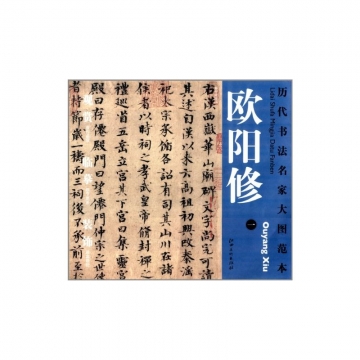 历代书法名家大图范本
Lidai Shufa Mingjia Datu Fanben
欧阳修
一
Ouyang Xiu
右漢西嶽華山廟碑文字尚完可
祀太宗承循各詔有司其山川在諸
侯者以時祠之孝武皇帝修封禪之
禮巡省五岳立宮其下宮曰集靈宮
殿曰存僊殿門曰望僊門仲宗之世
者持節歲一禱而三祠後不承前至于